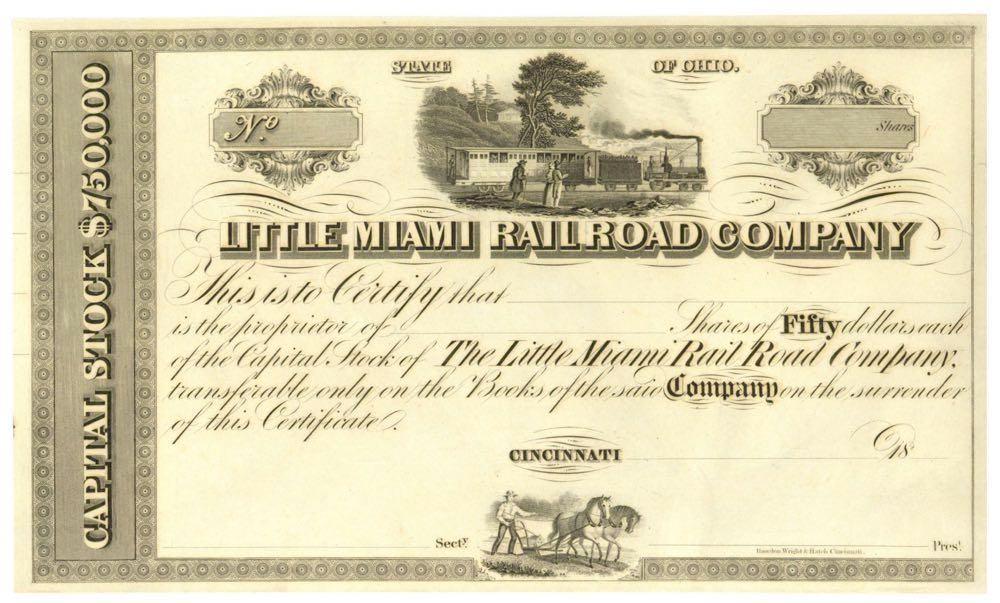 CAPITAL STOCK $750,000
STATE OF OHIO.
No.
Shares
LITTLE MIAMI RAIL ROAD COMPANY
This is to Certify that
is the proprietor of Shares of Fifty dollars each
of the Capital Stock of The Little Miami Rail Road Company,
transferable only on the Books of the said Company on the surrender
of this Certificate.
CINCINNATI 18
Secty.
Prest.
Rawdon Wright & Hatch Cincinnati.